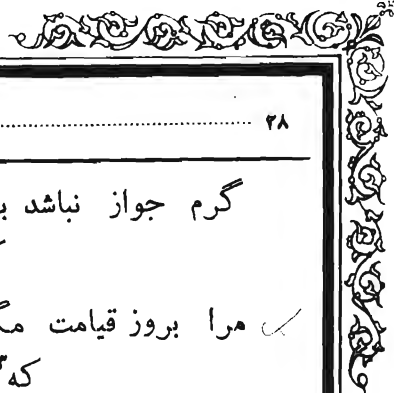 ۲۸
گرم جواز نباشد
مرا بروز قیامت
که۳